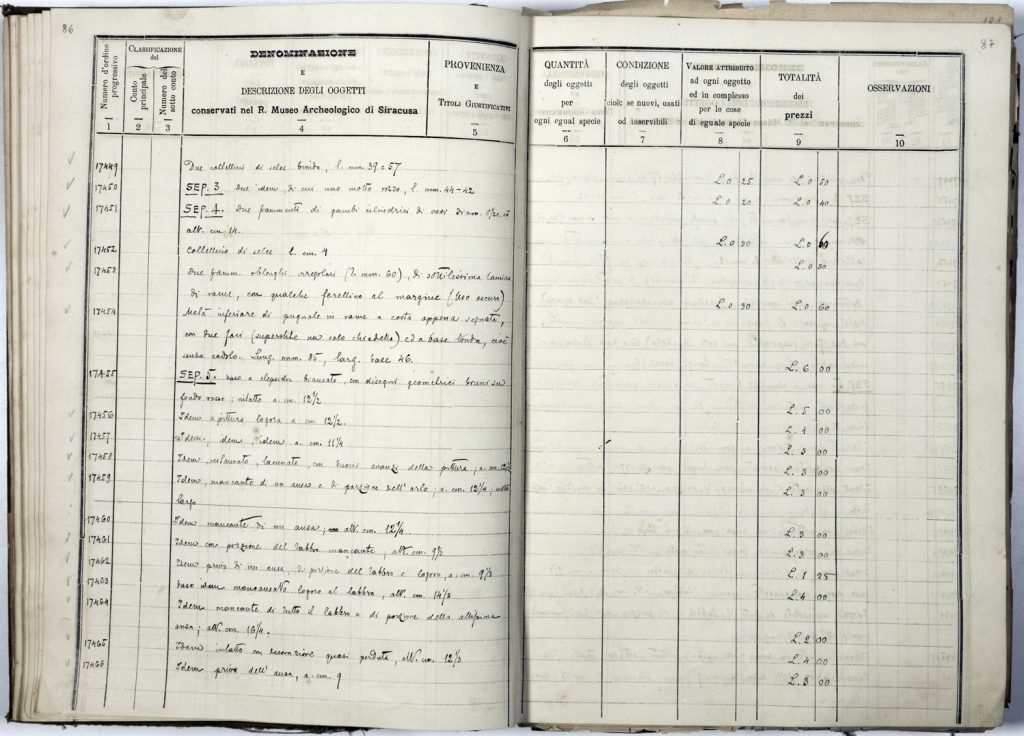 86
Numero d'ordine progressivo
CLASSIFICAZIONE
del
Conto principale
Numero del sotto conto
DENOMINAZIONE
E
DESCRIZIONE DEGLI OGGETTI
conservati nel R. Museo Archeologico di Siracusa
PROVENIENZA
E
TITOLI GIUSTIFICATIVI
1 2 3 4 5
17449 Due coltellini di selce bionda, l. mm. 39 e 57
17450 SEP. 3. Due idem, di cui uno molto rozzo, l. mm. 44-42
17451 SEP. 4. Due frammenti di gambi cilindrici di vasi Diam.
alt. cm. 14.
17452 Coltellino di selce l. cm. 9
17453 Due framm. oblunghi irregolari (l. mm. 60), di sottilissima lamina
di rame, con qualche forellino al margine (Uso oscuro)
17454 Metà inferiore di pugnale in rame a costa appena segnata,
con due fori (superstite un solo chiodetto) ed a base tonda, cioè
senza codolo. Lung. mm. 85, larg. base 46.
17455 SEP. 5. Vaso a clepsidra biansato, con disegni geometrici bruni su
fondo rosso; intatto a. cm. 12½
17456 Idem a pittura logora a cm. 12½.
17457 Idem, idem, idem a. cm. 11¼
17458 Idem, restaurato, lacunato, con buoni avanzi della pittura; a. cm.
17459 Idem, mancante di un'ansa e di porzione dell'orlo; a. cm. 12¼; molto
largo
17460 Idem mancante di un' ansa; alt. cm.
17461 Idem con porzione del labbro mancante; alt. cm.
17462 Idem privo di un' ansa, di porzione del labbro e logoro, a. cm.
17463 Vaso idem monoansato logoro al labbro, alt. cm.
17464 Idem mancante di tutto il labbro e di porzione della altissima
ansa; alt. cm. 16¼.
17465 Idem intatto con decorazione quasi perduta, alt. cm.
17466 Idem privo dell'ansa, a. cm. 9
87
QUANTITÀ
degli oggetti
per
ogni egual specie
CONDIZIONE
degli oggetti
cioè: se nuovi, usati
od inservibili
VALORE ATTRIBUITO
ad ogni oggetto
ed in complesso
per le cose
di eguale specie
TOTALITÀ
dei
prezzi
OSSERVAZIONI
6 7 8 9 10
L. 0 25 L. 0 50
L. 0 20 L. 0 40
L. 0 30 L. 0 60
L. 0 30
L. 0 30 L. 0 60
L. 6 00
L. 5 00
L. 4 00
L. 3 00
L. 3 00
L. 3 00
L. 3 00
L. 3 00
L. 1 25
L. 4 00
L. 2 00
L. 4 00
L. 3 00